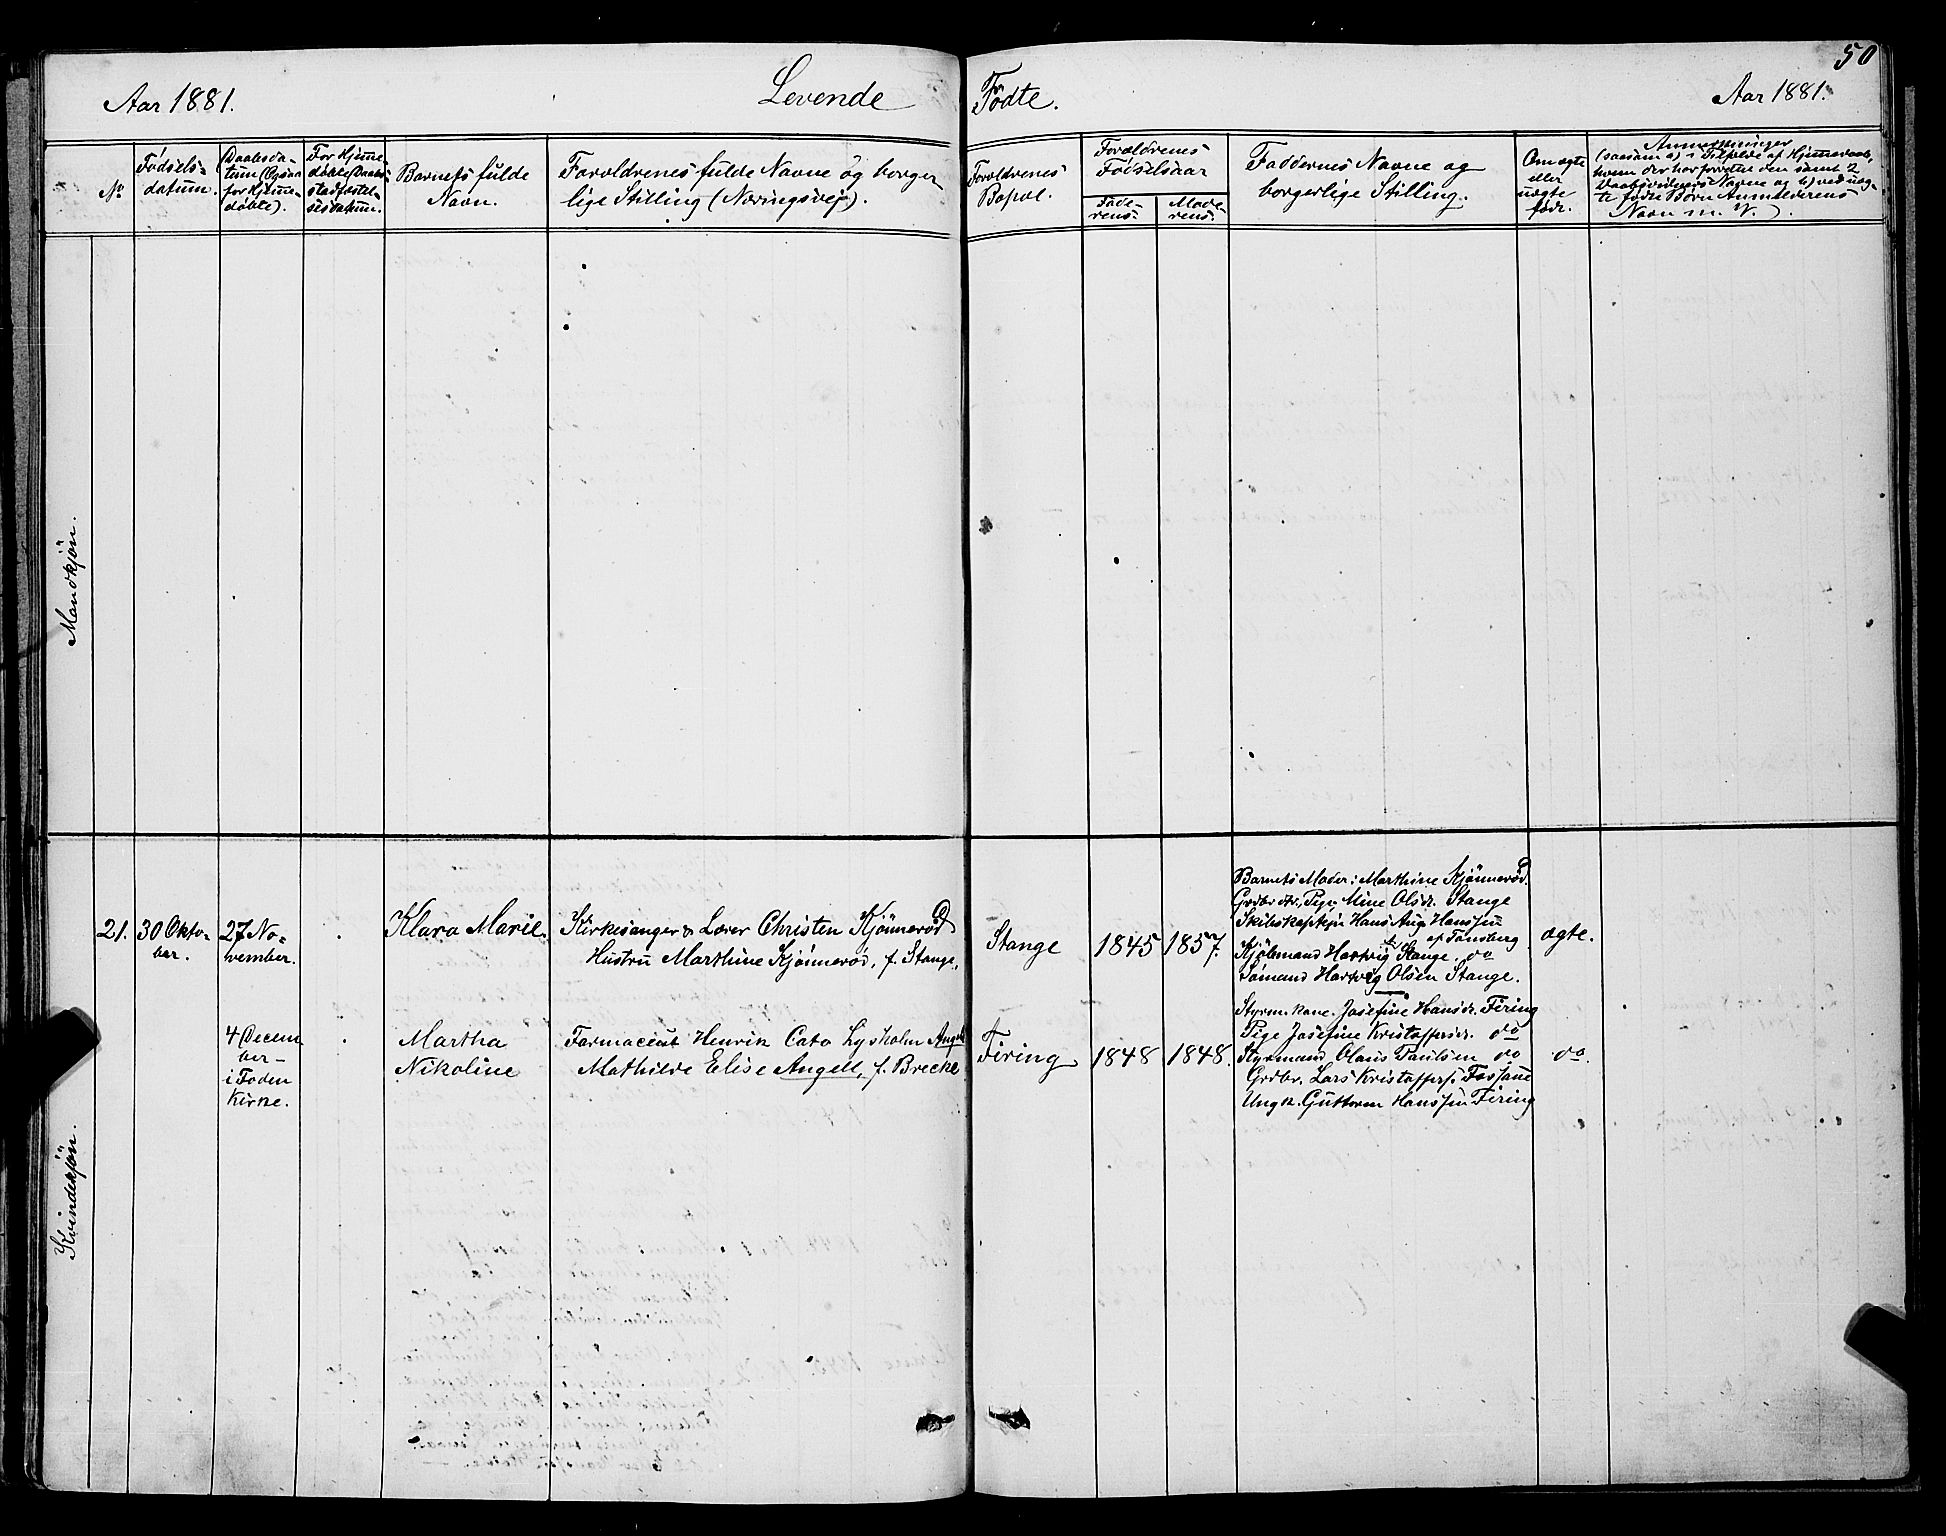 50
Aar 1881. Levende Fødte. Aar 1881.
No.
Fødsels-
datum.
Daabsda-
tum (Ogsaa
for Hjemme-
døbte).
For Hjemme-
døbte Daabs-
stadfæstel-
sesdatum.
Barnets fulde
Navn.
Forældrenes fulde Navne og borger
lige Stilling (Næringsvej).
Forældrenes
Bopæl.
Forældrenes
Fødselsaar
Fade-
rens.
Mode-
rens.
Faddernes Navne og
borgerlige Stilling.
Om ægte
eller
uægte
født.
Anmerkninger
(saasom a) i Tilfælde af Hjemmedaab,
hvem der har forrettet den samt 2
Daabsvidners Navne og b) ved uæg-
te fødte Børn Anmelderens
Navn m. V.).
Mandkjøn.
Kvindekjøn.
21.
30 Okto-
ber.
27 No-
vember.
Klara Marie.
Kirkesanger & Lærer Christen Kjønnerød
Hustru Marthine Kjønnerød, f. Stange.
Stange
1845
1857.
Barnets Moder: Marthine Kjønnerød.
Grdbr dtr., Pige Mine Olsdr. Stange
Skibskaptejn Hans Aug. Hanssen
af Tønsberg
Kjøbmand Hartvig Stange. do
Sømand Hartvig Olsen Stange.
ægte.
4 Decem
ber -
i Foden
Kirke.
Martha
Nikoline
Farmaceut Henrik Cato Lysholm Angell
Mathilde Elise Angell, f. Brecke
Firing
1848
1848.
Styrm. kone. Josefine Hansdr. Firing
Pige Josefine Kristoffersdr. do
Styrmand Olaus Paulsen do
Grdbr. Lars Kristoffers. Fossane
Ungk. Guttorm Hanssen Firing
do.